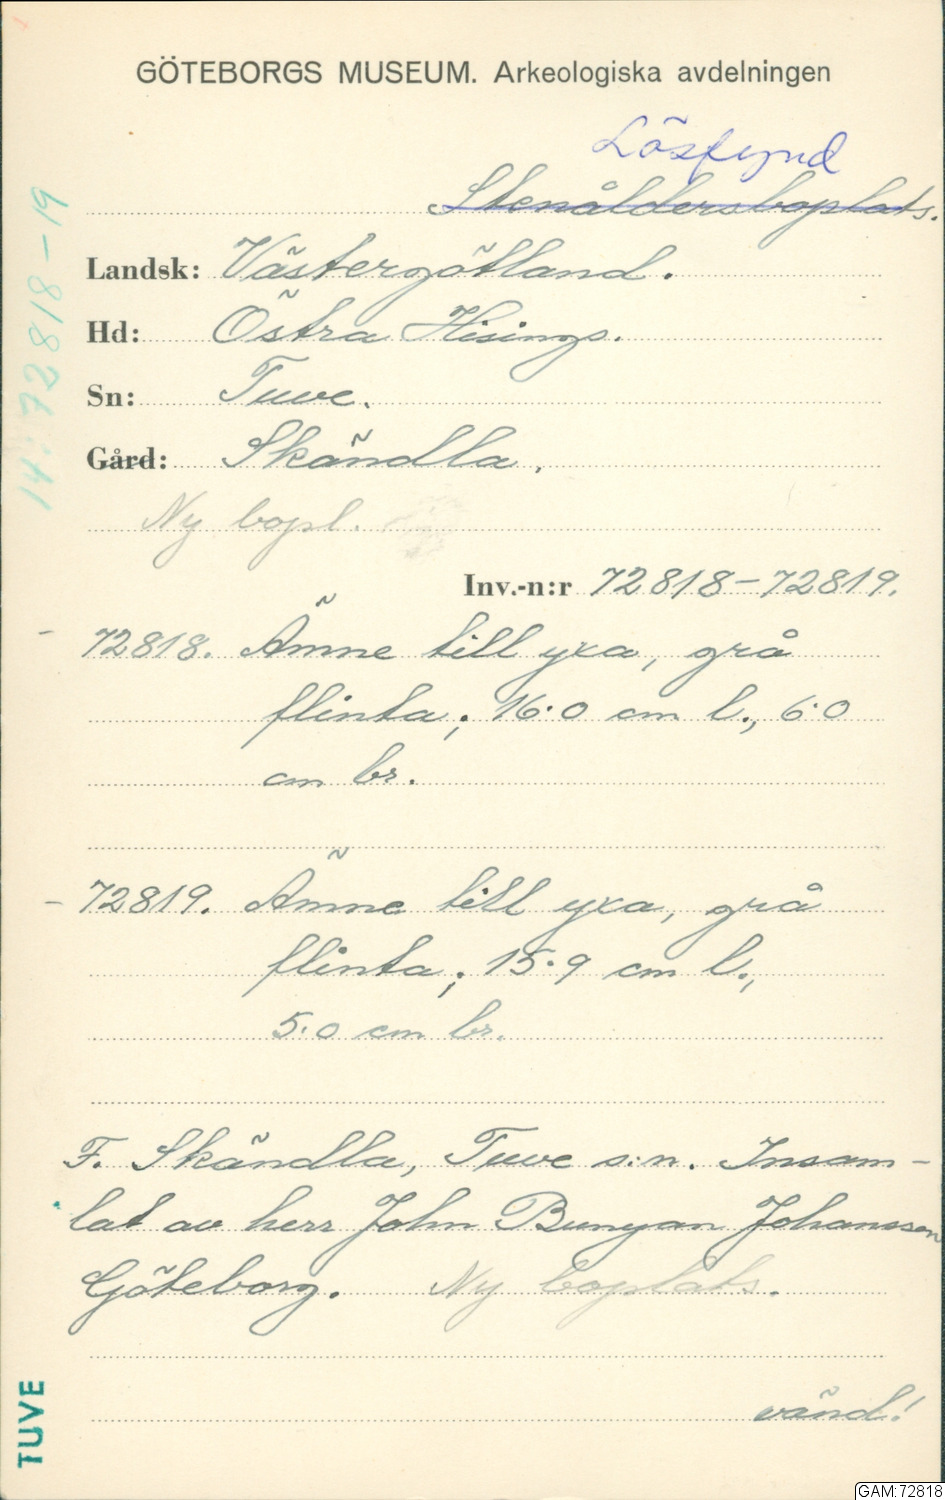 GÖTEBORGS MUSEUM. Arkeologiska avdelningen
Lösfynd
Stenåldersboplats.
Landsk: Västergötland.
Hd: Östra Hisings.
Sn: Tuve.
Gård: Skändla.
Ny bopl.
Inv.-n:r 72818-72819.
- 72818. Ämne till yxa, grå
flinta; 16.0 cm l., 6.0
cm br.
- 72819. Ämne till yxa, grå
flinta; 15.9 cm l.,
5.0 cm br.
F. Skändla, Tuve s:n. Insam-
lat av herr John Bunyan Johansson
Göteborg. Ny boplats.
vänd!
14:72818-19
TUVE
GAM:72818